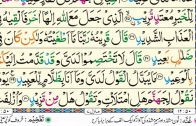 لِّلْخَيْرِ مُعْتَدٍ مُّرِيْبِ الَّذِيْ جَعَلَ مَعَ اللّٰهِ اِلٰهًا اٰخَرَ فَاَلْقِيٰهُ
فِي الْعَذَابِ الشَّدِيْدِ قَالَ قَرِيْنُهٗ رَبَّنَا مَاۤ اَطْغَيْتُهٗ وَلٰكِنْ كَانَ فِيْ
ضَلٰلٍۭ بَعِيْدٍ قَالَ لَا تَخْتَصِمُوْا لَدَيَّ وَقَدْ قَدَّمْتُ اِلَيْكُمْ
بِالْوَعِيْدِ مَا يُبَدَّلُ الْقَوْلُ لَدَيَّ وَمَاۤ اَنَا بِظَلَّامٍ لِّلْعَبِيْدِ يَوْمَ
نَقُوْلُ لِجَهَنَّمَ هَلِ امْتَلَاْتِ وَتَقُوْلُ هَلْ مِنْ مَّزِيْدٍ